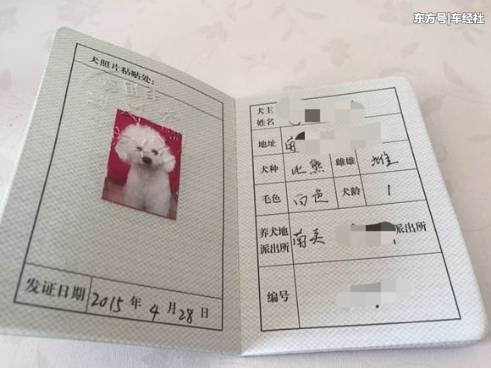 东方号|车经社
犬照片粘贴处:
发证日期 2015 年 4 月 28 日
犬主
姓名
地址
犬种 比熊 雌雄 雄
毛色 白色 犬龄 1
养犬地
派出所 南关 派出所
编号